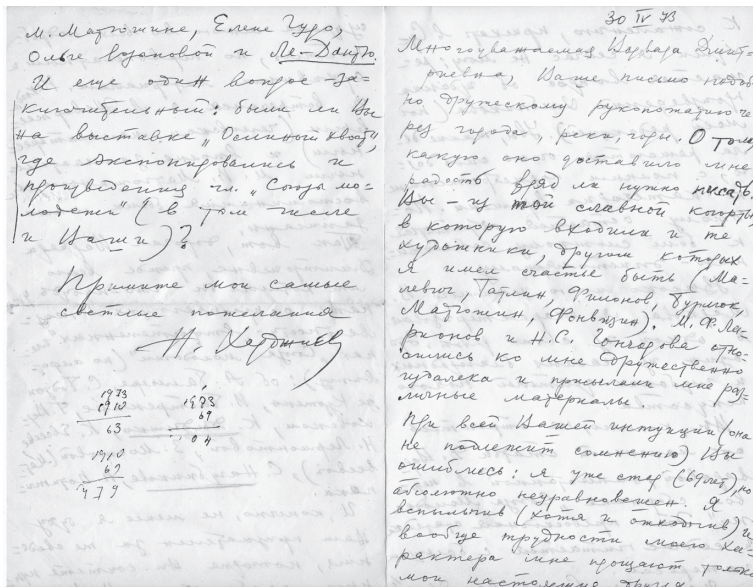 м. Матюшине, Елене Гуро,
Ольге Розановой и Ле-Дантю.
И еще один вопрос – за-
ключительный: были ли Вы
на выставке „Ослиный хвост",
где экспонировались и
произведения чл. „Союза мо-
лодежи" (в том числе
и Ваши)?
Примите мои самые
светлые пожелания
Н. Харджиев
1973
1910
63
1973
69
04
1910
69
479
30 IV 73
Многоуважаемая Варвара Дмит-
риевна, Ваше письмо подоб-
но дружескому рукопожатию че-
рез города, реки, горы. О том,
какую оно доставило мне
радость вряд ли нужно писать,
Вы – из той славной когорты,
в которую входили и те
художники, другом которых
я имел счастье быть (Ма-
левич, Татлин, Филонов, Бурлюк,
Матюшин, Фонвизин). М. Ф. Ла-
рионов и Н. С. Гончарова отно-
сились ко мне дружественно
издалека и присылали мне раз-
личные материалы.
При всей Вашей интуиции (она
не подлежит сомнению) Вы
ошиблись: я уже стар (69 лет), но
абсолютно неуравновешен. Я
вспыльчив (хотя и отходчив) и
вообще трудности моего ха-
рактера мне прощают только
мои настоящие друзья